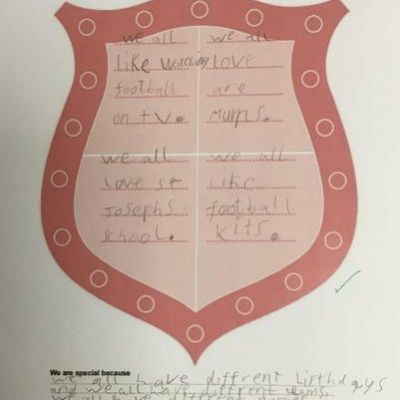 we all
like watching
football
on tv.
we all
love
are
mums.
we all
love st
Josephs
school.
we all
like
football
kits.
We are special because
we all have diffrent birthdays
and we all have different
we all have different